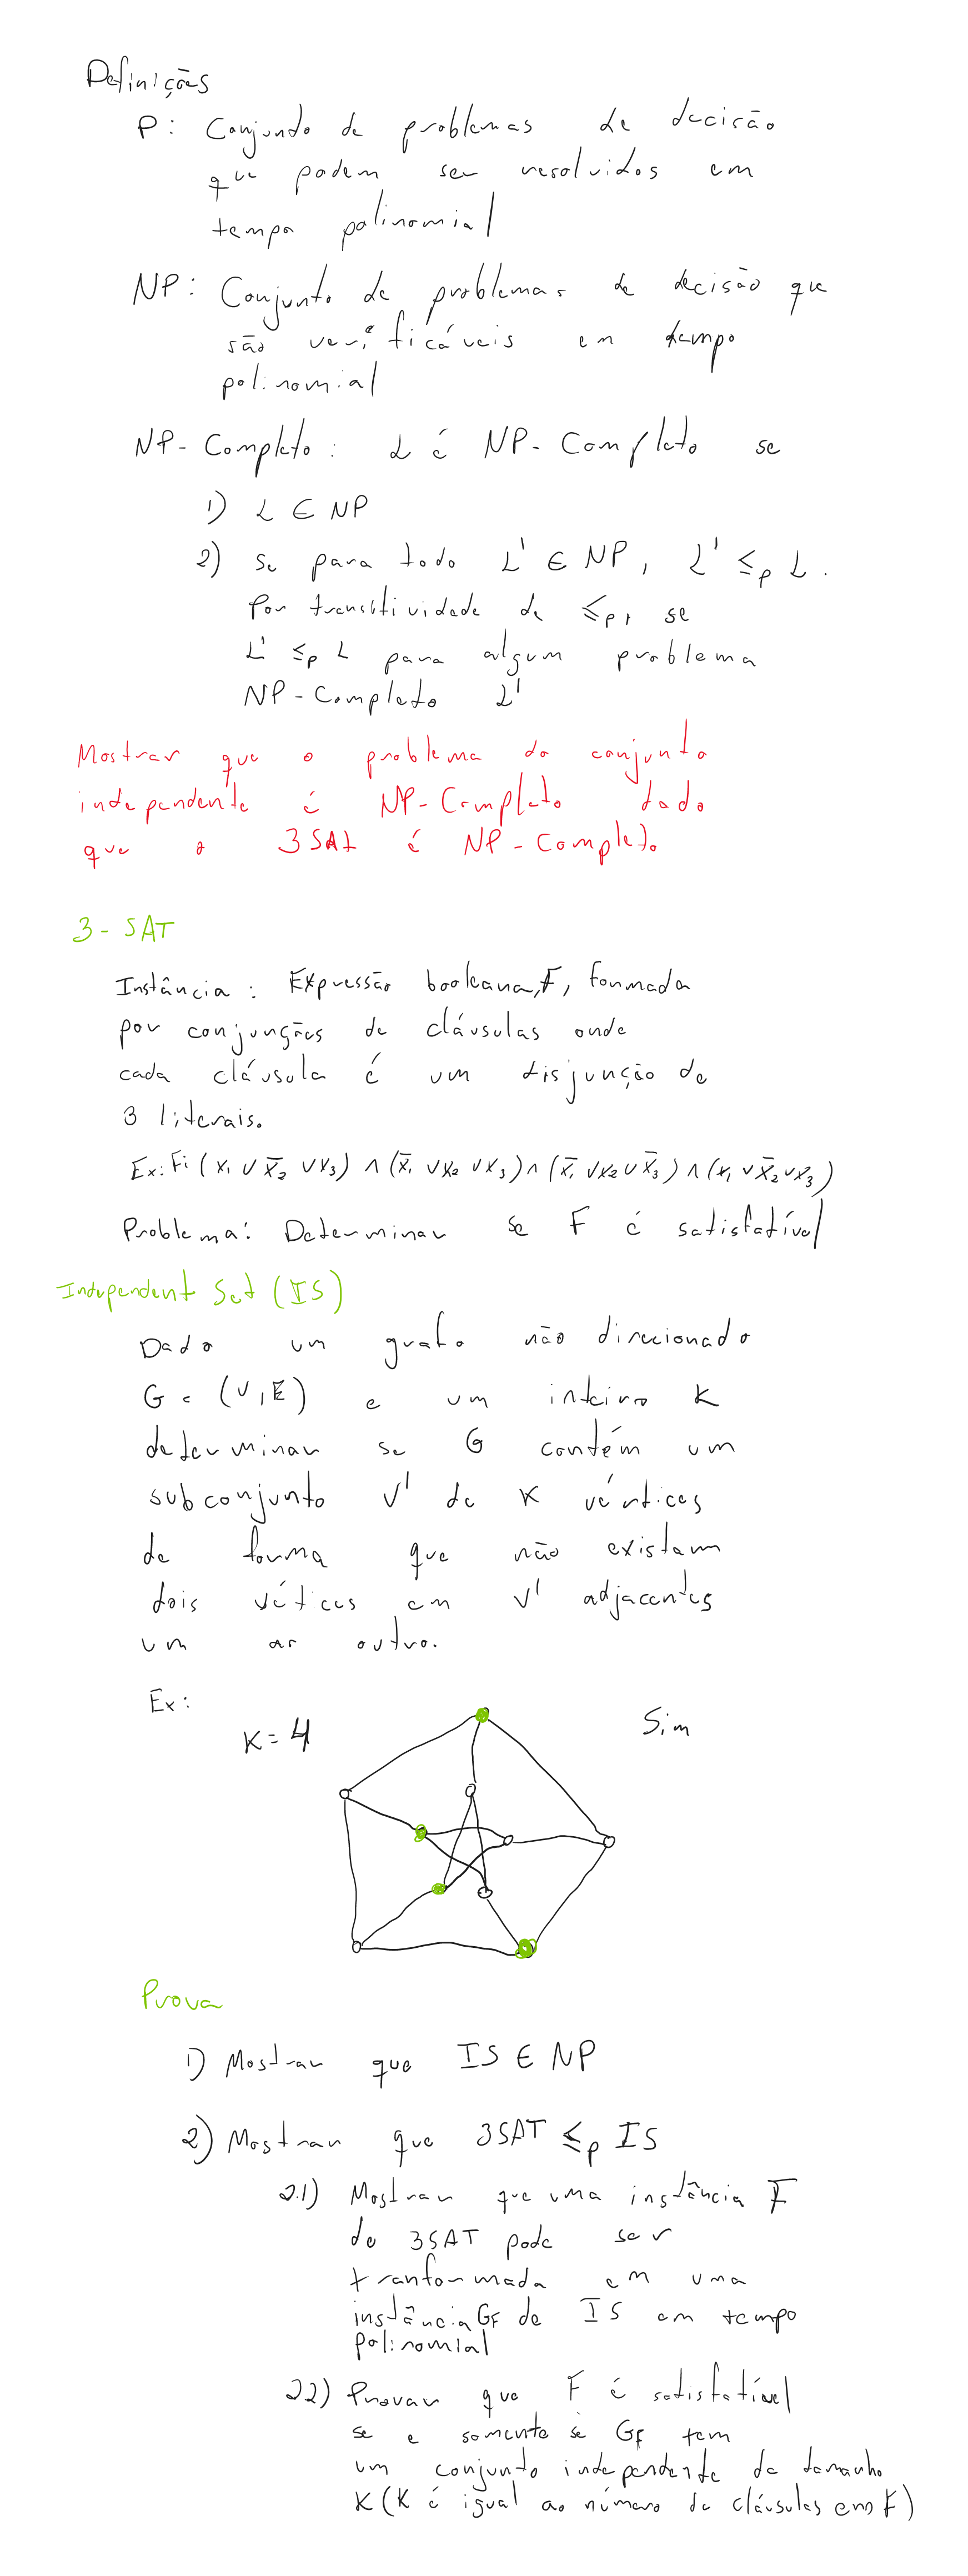 Definições
P: Conjundo de problemas de decisão
que podem ser resolvidos em
tempo polinomial
NP: Conjunto de problemas de decisão que
são verificáveis em tempo
polinomial
NP-Completo: L é NP-Completo se
1) L ∈ NP
2) se para todo L' ∈ NP, L' ≤p L.
Por transitividade de ≤p, se
L' ≤p L para algum problema
NP-Completo L'
Mostrar que o problema do conjunto
independente é NP-Completo dado
que o 3SAt é NP-Completo
3-SAT
Instância: Expressão booleana, F, formada
por conjunções de cláusulas onde
cada cláusula é um disjunção de
3 literais.
Ex: F: (x₁ ∨ x̄₂ ∨ x₃) ∧ (x̄₁ ∨ x₂ ∨ x₃) ∧ (x̄₁ ∨ x₂ ∨ x̄₃) ∧ (x₁ ∨ x̄₂ ∨ x₃)
Problema: Determinar se F é satisfatível
Independent Set (IS)
Dado um grafo não direcionado
G = (V, E) e um inteiro K
determinar se G contém um
subconjunto V' de K vértices
de forma que não existam
dois vétices em V' adjacentes
um ao outro.
Ex:
K = 4 Sim
Prova
1) Mostrar que IS ∈ NP
2) Mostrar que 3SAT ≤p IS
2.1) Mostrar que uma instância F
de 3SAT pode ser
tranformada em uma
instância GF de IS em tempo
polinomial
2.2) Provar que F é satisfatível
se e somente se GF tem
um conjunto independente de tamanho
K (K é igual ao número de cláusulas em F)